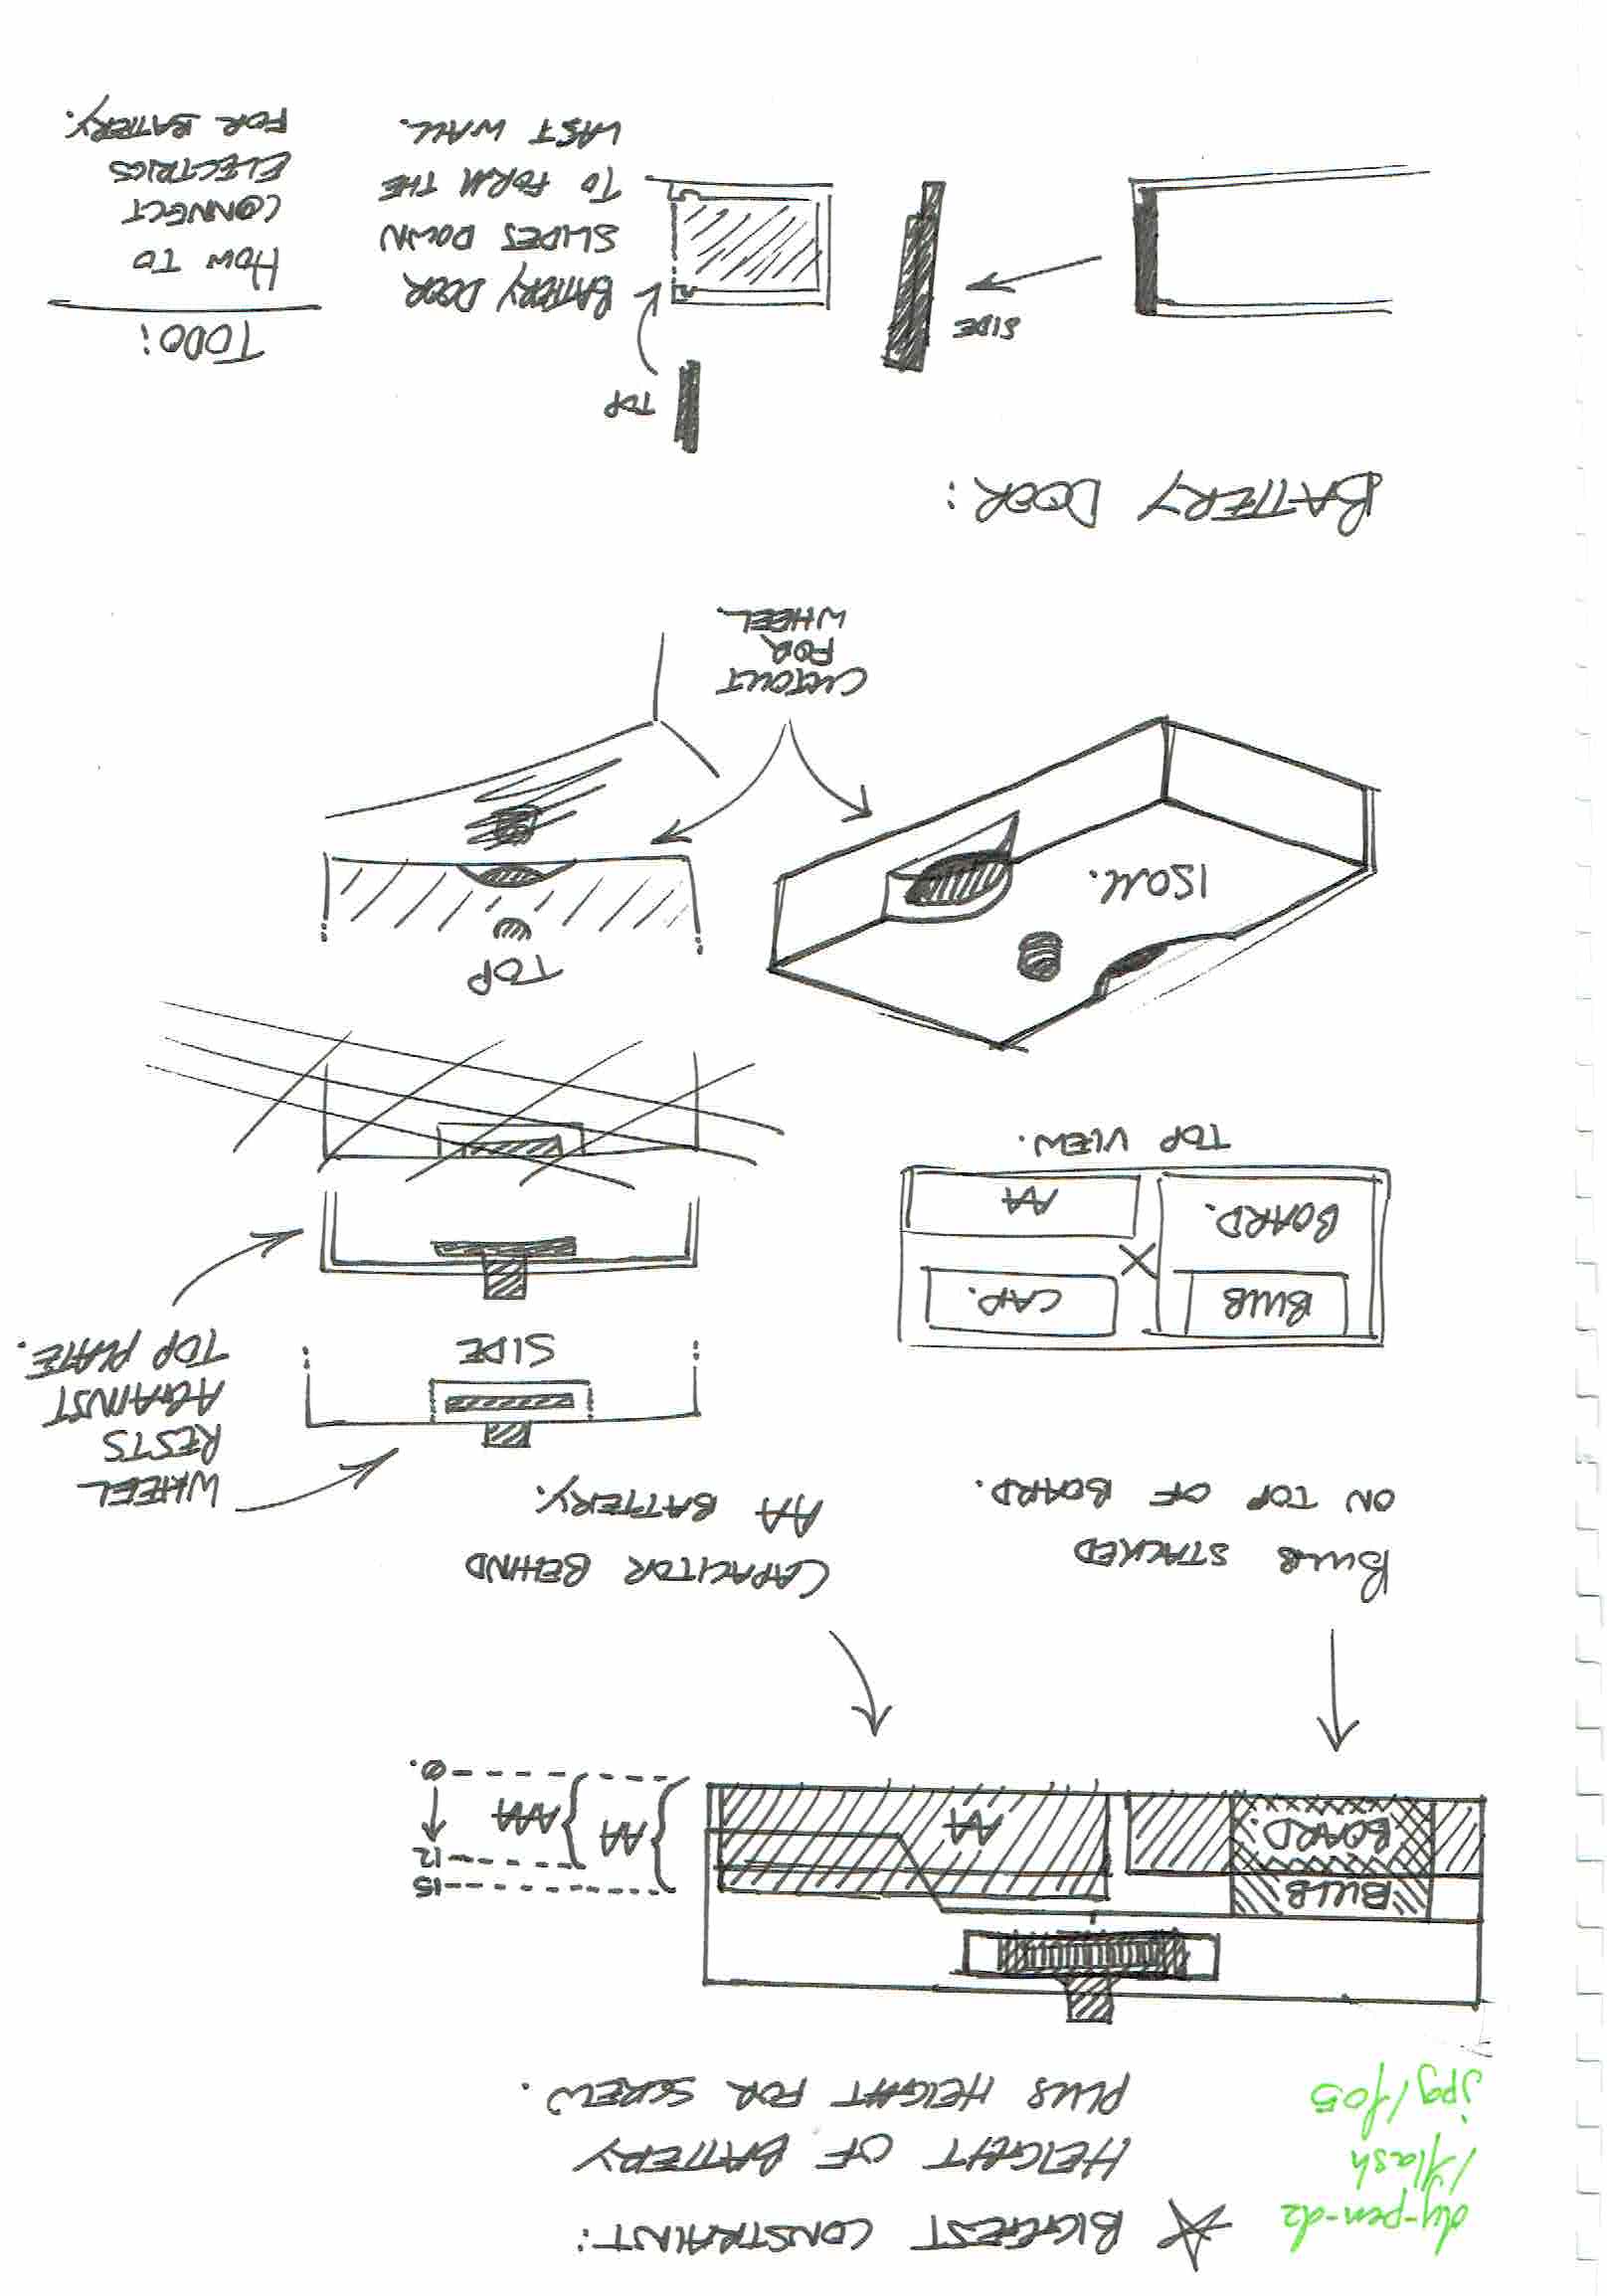 dy-pen-d2
/flash
jpg/f05
☆ BIGGEST CONSTRAINT:
HEIGHT OF BATTERY
PLUS HEIGHT FOR SCREW.
BULB
BOARD.
AA
15
12
AA
AAA
0.
BULB STACKED
ON TOP OF BOARD.
CAPACITOR BEHIND
AA BATTERY.
WHEEL
RESTS
AGAINST
TOP PLATE.
SIDE
BULB
CAP.
BOARD.
AA
TOP VIEW.
TOP
ISOM.
CUTOUT
FOR
WHEEL.
BATTERY DOOR:
TOP
SIDE
BATTERY DOOR
SLIDES DOWN
TO FORM THE
LAST WALL.
TODO:
HOW TO
CONNECT
ELECTRICS
FOR BATTERY.